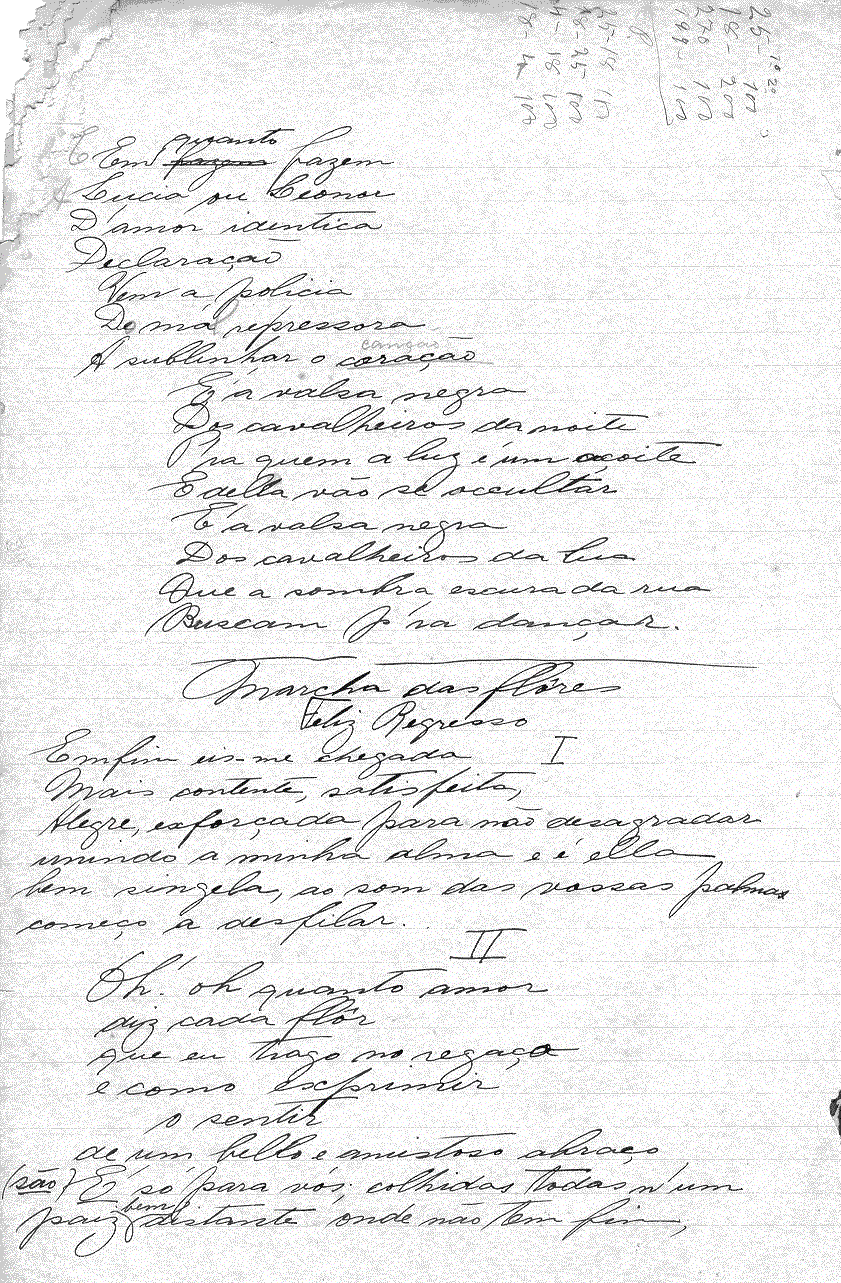 25- 100
18- 200
270 100
199- 100
25-18 100
18-25- 100
18 100
18- 4 100
E Em quanto fazem fazem
Lucia ou Leonor
D'amor identica
Declaração
Vem a policia
Do má repressora
A sublinhar o coração canção
E' a valsa negra
Dos cavalheiros da noite
P'ra quem a luz é um açoite
E della vão se occultar
E' a valsa negra
Dos cavalheiros da lua
Que a sombra escura da rua
Buscam p'ra dançar.
Marcha das flôres
Feliz Regresso
I
Emfim eis-me chegada
Mais contente, satisfeita,
Alegre, esforçada para não desagradar
unindo a minha alma e é ella
bem singela, ao som das vossas palmas
começo a desfilar...
II
Oh! oh quanto amor
diz cada flôr
que eu trago no regaço
e como exprimir
o sentir
de um bello e amistoso abraço
(são) E' só para vós, colhidas todas n'um
paiz bem distante onde não tem fim,